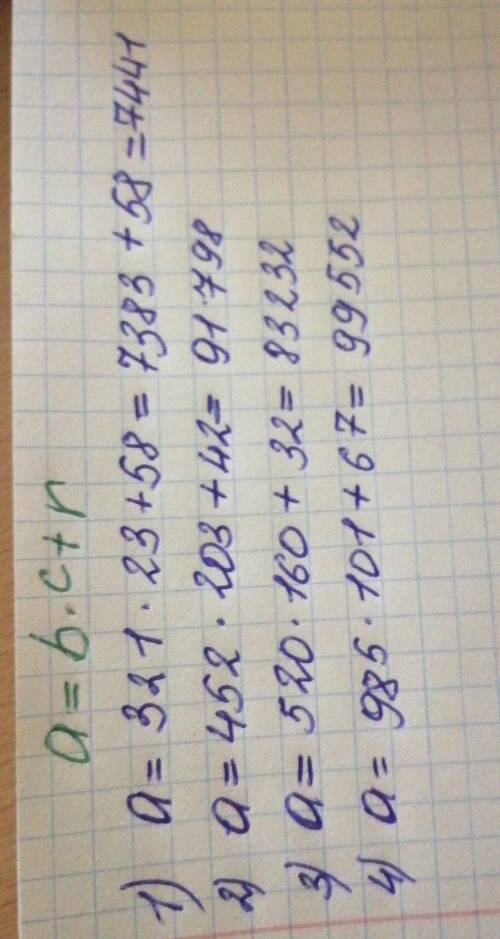 a = b · c + r
1) a = 321 · 23 + 58 = 7383 + 58 = 7441
2) a = 452 · 203 + 42 = 91798
3) a = 520 · 160 + 32 = 83232
4) a = 985 · 101 + 67 = 99552